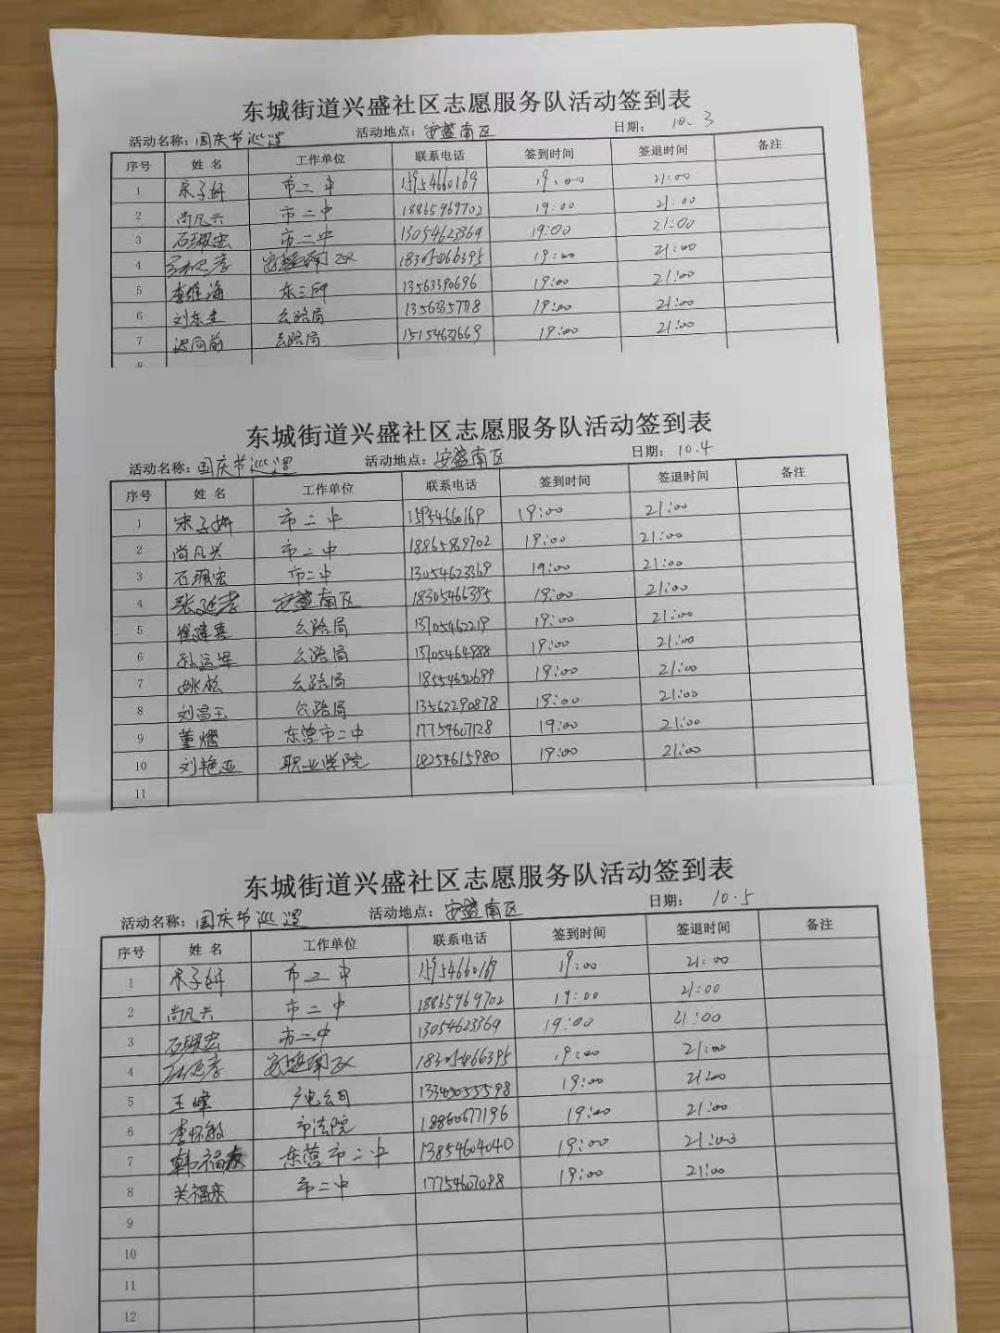 东城街道兴盛社区志愿服务队活动签到表
活动名称：国庆节巡逻 活动地点：安盛南区 日期：10.3
序号 姓名 工作单位 联系电话 签到时间 签退时间 备注
1 市二中 15954660169 19:00 21:00
2 尚凡兴 市二中 18865969702 19:00 21:00
3 石珮宏 市二中 13054623369 19:00 21:00
4 安盛南区 18305466395 19:00 21:00
5 李维海 13563390696 19:00 21:00
6 刘东生 公路局 19:00 21:00
7 迟向前 公路局 19:00 21:00
8
东城街道兴盛社区志愿服务队活动签到表
活动名称：国庆节巡逻 活动地点：安盛南区 日期：10.4
序号 姓名 工作单位 联系电话 签到时间 签退时间 备注
1 宋子妍 市二中 15954660169 19:00 21:00
2 尚凡兴 市二中 18865969702 19:00 21:00
3 石珮宏 市二中 13054623369 19:00 21:00
4 张延孝 安盛南区 18305466395 19:00 21:00
5 崔建喜 公路局 13705462219 19:00 21:00
6 孙运军 公路局 13705464988 19:00 21:00
7 姚松 公路局 19:00 21:00
8 刘昌玉 公路局 13562290878 19:00 21:00
9 董熠 东营市二中 17754607128 19:00 21:00
10 刘艳亚 职业学院 18254615980 19:00 21:00
11
东城街道兴盛社区志愿服务队活动签到表
活动名称：国庆节巡逻 活动地点：安盛南区 日期：10.5
序号 姓名 工作单位 联系电话 签到时间 签退时间 备注
1 市二中 15954660169 19:00 21:00
2 尚凡兴 市二中 18865969702 19:00 21:00
3 石珮宏 市二中 13054623369 19:00 21:00
4 安盛南区 18305466395 19:00 21:00
5 王峰 19:00 21:00
6 李怀敏 市法院 18860677196 19:00 21:00
7 东营市二中 13854604040 19:00 21:00
8 关福东 市二中 17754607098 19:00 21:00
9
10
11
12